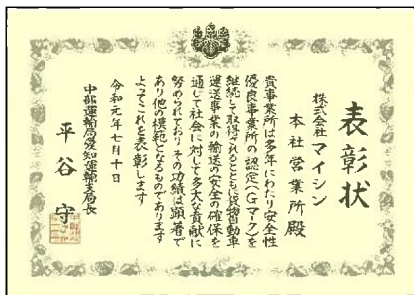 表彰状
株式会社マイシン
本社営業所殿
貴事業所は多年にわたり安全性
優良事業所の認定(Gマーク)を
継続して取得されるとともに貨物自動車
運送事業の輸送の安全の確保を
通して社会に対して多大な貢献に
努められておりその功績は顕著で
あり他の模範となるものであります
よってこれを表彰します
令和元年七月十日
中部運輸局愛知運輸支局長
平谷守